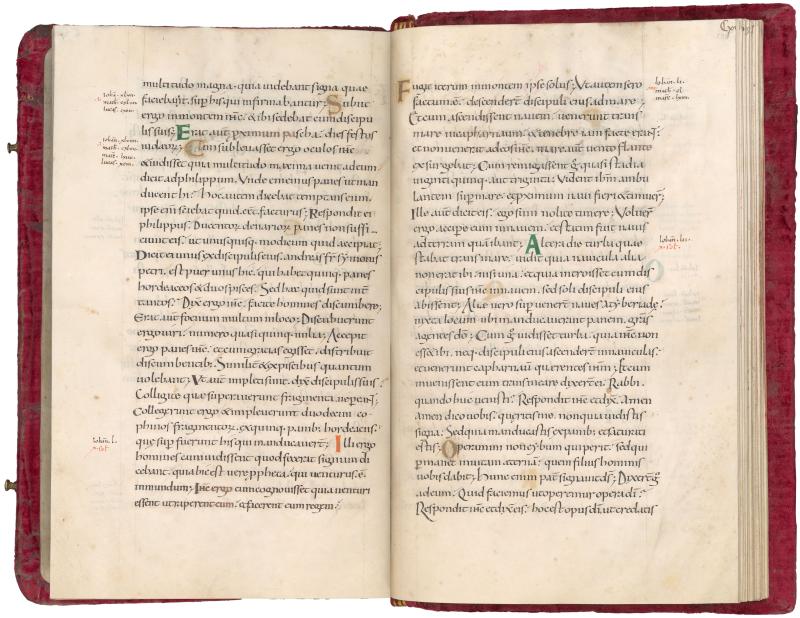 multitudo magna, quia uidebant signa quae
faciebat sup his qui infirmabantur; Subiit
ergo inmontem ihc & ibi sedebat cum discipu
lis suis; Erat aut pximum pascha, dies festus
iudaeoru; Cum subleuasset ergo oculos ihc
& uidisset quia multitudo maxima uenit adeum
dicit ad philippum, Unde ememus panes ut man
ducent hi; Hoc autem dicebat temptans eum,
ipse enī sciebat quid eet facturus; Respondit ei
philippus, Ducentoru denarioru panes non suffi
ciunt eis, ut unusquisq; modicum quid accipiat;
Dicit ei unus ex discipulis eius, andreas fr symonis
petri, est puer unus hic, qui habet quinq; panes
hordeaceos & duos pisces, Sed haec quid sunt int
tantos; Dix ergo ihc, facite homines discumbere;
Erat aut foenum multum inloco; Discubuerunt
ergo uiri, numero quasi quinq; milia; Accepit
ergo panes ihc, et cum gratias egisset, distribuit
discumbentib; Similit & ex piscibus quantum
uolebant; Ut aut impleti sunt, dix discipulis suis;
Colligite quae superauerunt fragmenta, ne pereant;
Collegerunt ergo & impleuerunt duodecim co
phinos fragmentoru, ex quinq; panib; hordeaceis,
que supfuerunt his qui manducauert; Illi ergo
homines cum uidissent quod fecerat signum di
cebant, quia hic est uere ppheta, qui uenturus ē
inmundum; Ihc ergo cum cognouisset quia uenturi
essent ut raperent eum, & facerent eum regem;
Fugit iterum inmontem ipse solus; Ut autem sero
factum ē, descendert discipuli eius admare,
Et cum ascendissent nauem, uenerunt trans
mare incapharnaum, & tenebre iam facte erant,
et non uenerat adeos ihc, mare aut uento flante
exsurgebat; Cum remigassent g quasi stadia
uiginti quinq; aut triginta; Uident ihm ambu
lantem sup mare, & pximum naui fieri & timuer;
Ille aut dicit eis, ego sum nolite timere; Voluer
ergo accipere eum innauem, et statim fuit nauis
adterram quā ibant; Altera die turba quae
stabat trans mare, uidit quia nauicula alia
non erat ibi nisi una, et quia introisset cum dis
cipulis suis ihc innauem, sed soli discipuli eius
abissent; Aliae uero supuenert naues a tyberiade,
iuxta locum ubi manducauerant panem, gratias
agentes dno; Cum g uidisset turba, quia ihc non
esset ibi, neq; discipuli eius, ascendert innauiculas,
et uenerunt capharnaū querentes ihm; Et cum
inuenissent eum trans mare dixert ei, Rabbi,
quando huc uenisti; Respondit ihc et dix, amen
amen dico uobis, queritis me, non quia uidistis
signa, Sed quia manducastis ex panib; et saturati
estis; Operamini non cybum qui perit, sed qui
pmanet inuitam aeternā, quem filius hominis
uobis dabit; Hunc enim pat signauit ds; Dixert g
adeum, Quid faciemus ut operemur opera di;
Respondit ihc et dix eis, hoc est opus di, ut credatis